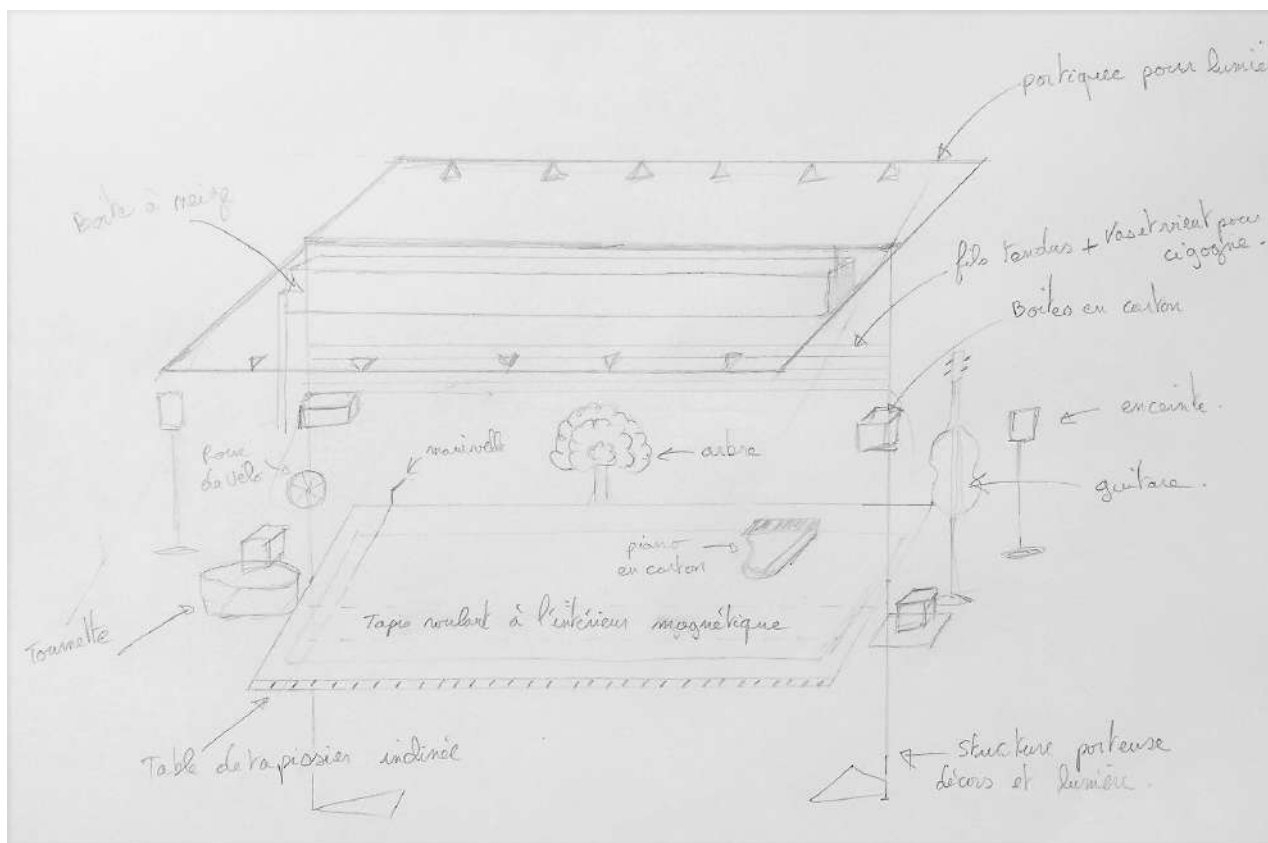 portique pour lumiè
Boite à neige
fils tendus + vas et vient pour
cigogne.
Boites en carton
enceinte.
roue
de vélo
manivelle
arbre
guitare.
piano
en carton
Tapis roulant à l'intérieur magnétique
Tournette
Table de tapissier inclinée
Structure porteuse
décors et lumière.